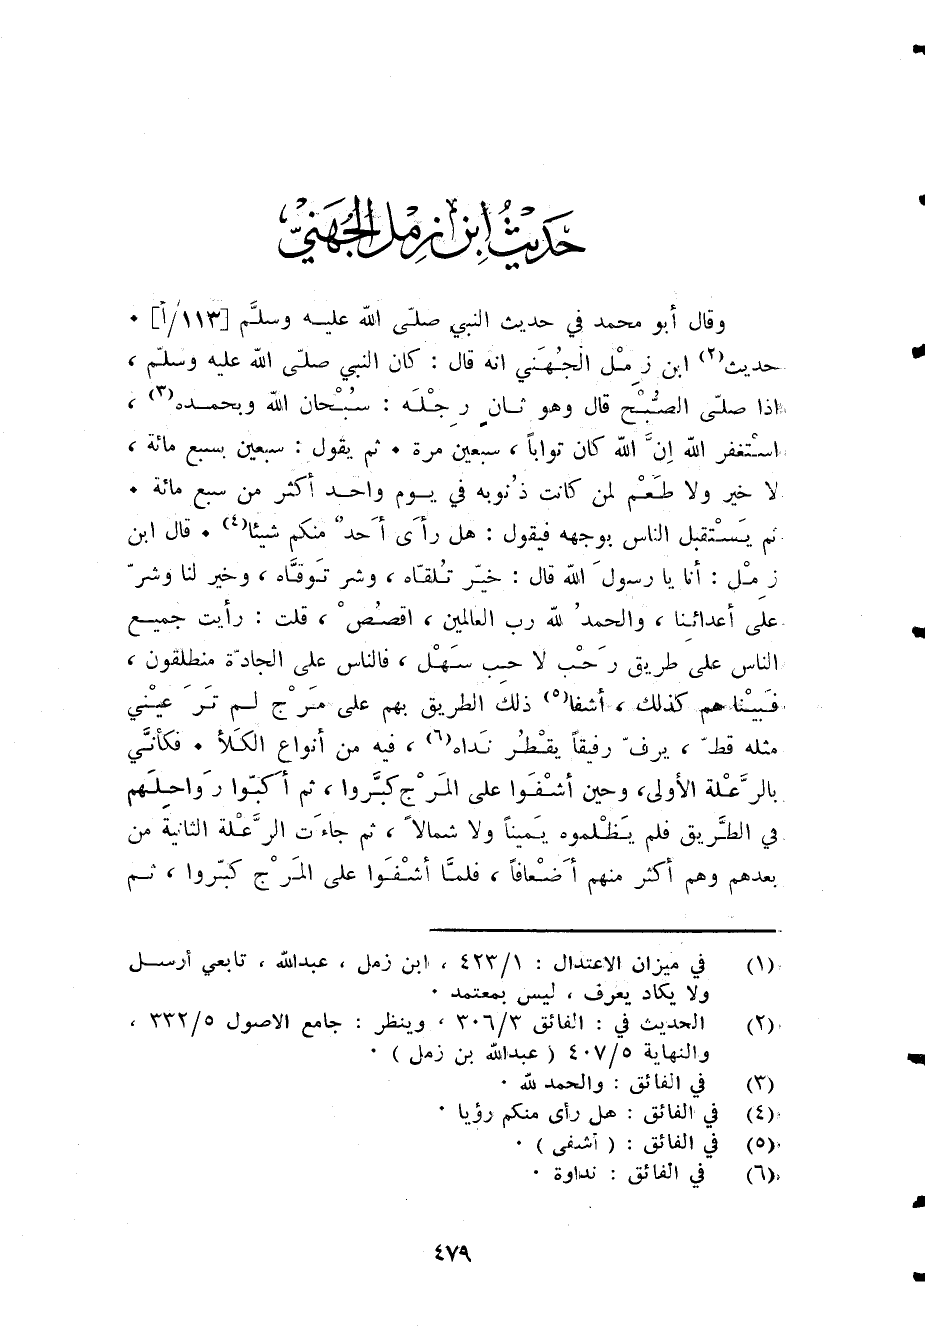 حَديثُ ابن زِمْل الجُهَنيّ
وقال أبو محمد في حديث النبي صلّى الله عليه وسلَّم [١١٣/أ] ٠
حديث(٢) ابن زِمْل الجُهَني انه قال : كان النبي صلّى الله عليه وسلّم ،
اذا صلّى الصُبْح قال وهو ثانٍ رِجْلَه : سُبْحان الله وبحمده(٣) ،
استْغفر الله إنَّ الله كان تواباً ، سبعين مرة ٠ ثم يقول : سبعين بسبع مائة ،
لا خير ولا طَعْم لمن كانت ذُنوبه في يوم واحد أكثر من سبع مائة ٠
ثم يَسْتقبل الناس بوجهه فيقول : هل رأَى أَحدٌ منكم شيئا(٤) ٠ قال ابن
زِمْل : أنا يا رسولَ الله قال : خيّر تلُقاه ، وشر توَقَّاه ، وخير لنا وشرّ
على أعدائِنا ، والحمدُ لله رب العالمين ، اقصُصْ ، قلت : رأيت جميع
الناس على طريق رَحْب لاحِب سَهْل ، فالناس على الجادّة منطلقون ،
فَبيْنا هم كذلك ، أشفا(٥) ذلك الطريق بهم على مَرْج لم تَرَ عيْني
مثله قطّ ، يرفّ رفيقاً يقْطُر نَداه(٦) ، فيه من أنواع الكَلأ ٠ فكأنَّي
بالرَّعْلة الأولى، وحين أشْفَوا على المَرْج كبَّروا ، ثم أكَبّوا رَواحِلَهم
في الطَّريق فلم يَظْلموه يَميناً ولا شمالاً ، ثم جاءَت الرَّعْلة الثانية من
بعدهم وهم أكثر منهم أضَعْافاً ، فلمَّا أشْفَوا على المَرْج كبّروا ، ثم
(١) في ميزان الاعتدال : ٤٢٣/١ ، ابن زمل ، عبدالله ، تابعي أرسل
ولا يكاد يعرف ، ليس بمعتمد ٠
(٢) الحديث في : الفائق ٣٠٦/٣ ، وينظر : جامع الاصول ٣٣٢/٥ ،
والنهاية ٤٠٧/٥ ( عبدالله بن زمل ) ٠
(٣) في الفائق : والحمد لله ٠
(٤) في الفائق : هل رأى منكم رؤيا ٠
(٥) في الفائق : ( أشفى ) ٠
(٦) في الفائق : نداوة ٠
٤٧٩